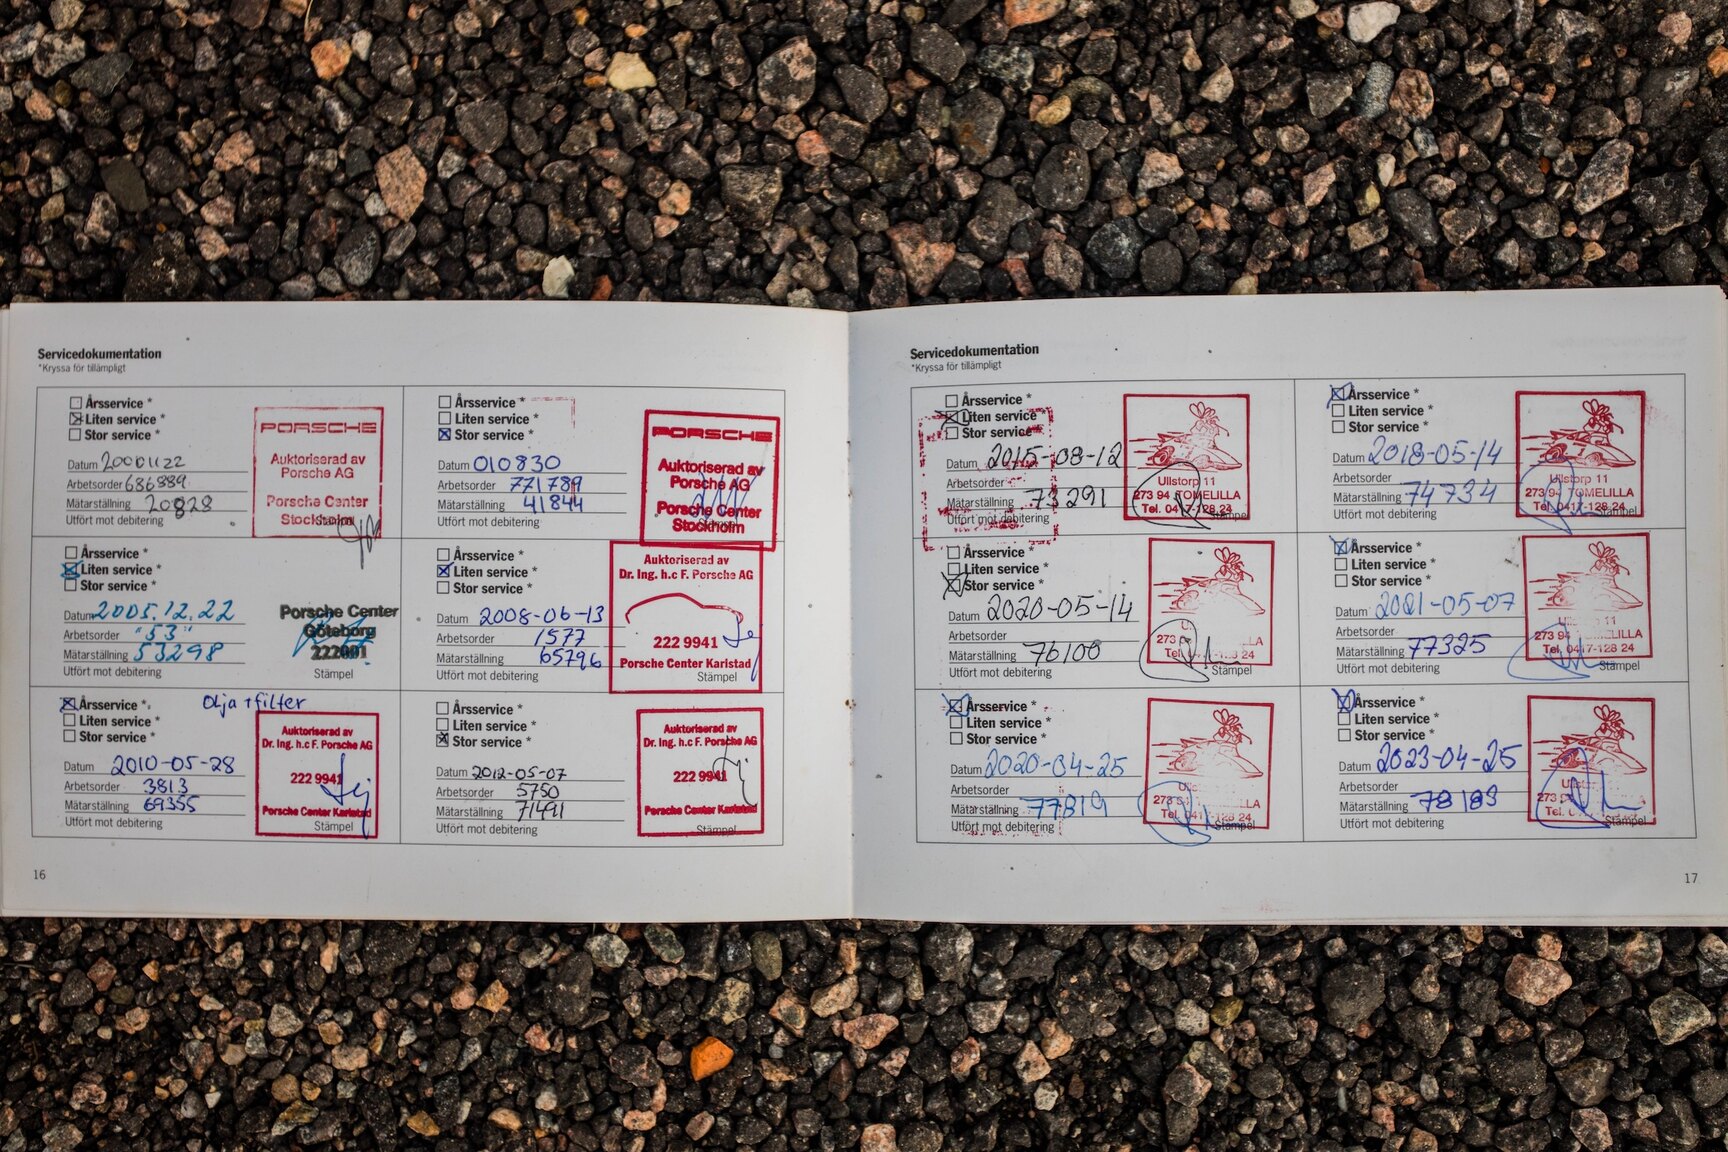 Servicedokumentation
*Kryssa för tillämpligt
Årsservice *
Liten service *
Stor service *
Datum 20001122
Arbetsorder 686889
Mätarställning 20828
Utfört mot debitering
PORSCHE
Auktoriserad av
Porsche AG
Porsche Center
Stockholm
Årsservice *
Liten service *
Stor service *
Datum 010830
Arbetsorder 771789
Mätarställning 41844
Utfört mot debitering
PORSCHE
Auktoriserad av
Porsche AG
Porsche Center
Stockholm
Årsservice *
Liten service *
Stor service *
Datum 2005.12.22
Arbetsorder "53"
Mätarställning 53298
Utfört mot debitering
Porsche Center
Göteborg
222001
Stämpel
Årsservice *
Liten service *
Stor service *
Datum 2008-06-13
Arbetsorder 1577
Mätarställning 65796
Utfört mot debitering
Auktoriserad av
Dr. Ing. h.c F. Porsche AG
222 9941
Porsche Center Karlstad
Stämpel
Årsservice * Olja + filter
Liten service *
Stor service *
Datum 2010-05-28
Arbetsorder 3813
Mätarställning 69355
Utfört mot debitering
Auktoriserad av
Dr. Ing. h.c F. Porsche AG
222 9941
Porsche Center Karlstad
Stämpel
Årsservice *
Liten service *
Stor service *
Datum 2012-05-07
Arbetsorder 5750
Mätarställning 71491
Utfört mot debitering
Auktoriserad av
Dr. Ing. h.c F. Porsche AG
222 9941
Porsche Center Karlstad
Stämpel
16
Servicedokumentation
*Kryssa för tillämpligt
Årsservice *
Liten service *
Stor service *
Datum 2015-08-12
Arbetsorder
Mätarställning 73291
Utfört mot debitering
Ullstorp 11
273 94 TOMELILLA
Tel. 0417-128 24
Stämpel
Årsservice *
Liten service *
Stor service *
Datum 2018-05-14
Arbetsorder
Mätarställning 74734
Utfört mot debitering
Ullstorp 11
273 94 TOMELILLA
Tel. 0417-128 24
Stämpel
Årsservice *
Liten service *
Stor service *
Datum 2020-05-14
Arbetsorder
Mätarställning 76100
Utfört mot debitering
273
Tel. 24
Stämpel
Årsservice *
Liten service *
Stor service *
Datum 2021-05-07
Arbetsorder
Mätarställning 77325
Utfört mot debitering
11
273 94 TOMELILLA
Tel. 0417-128 24
Stämpel
Årsservice *
Liten service *
Stor service *
Datum 2020-04-25
Arbetsorder
Mätarställning 77819
Utfört mot debitering
273
Tel. 0417-128 24
Stämpel
Årsservice *
Liten service *
Stor service *
Datum 2023-04-25
Arbetsorder
Mätarställning 78183
Utfört mot debitering
273
Tel.
Stämpel
17